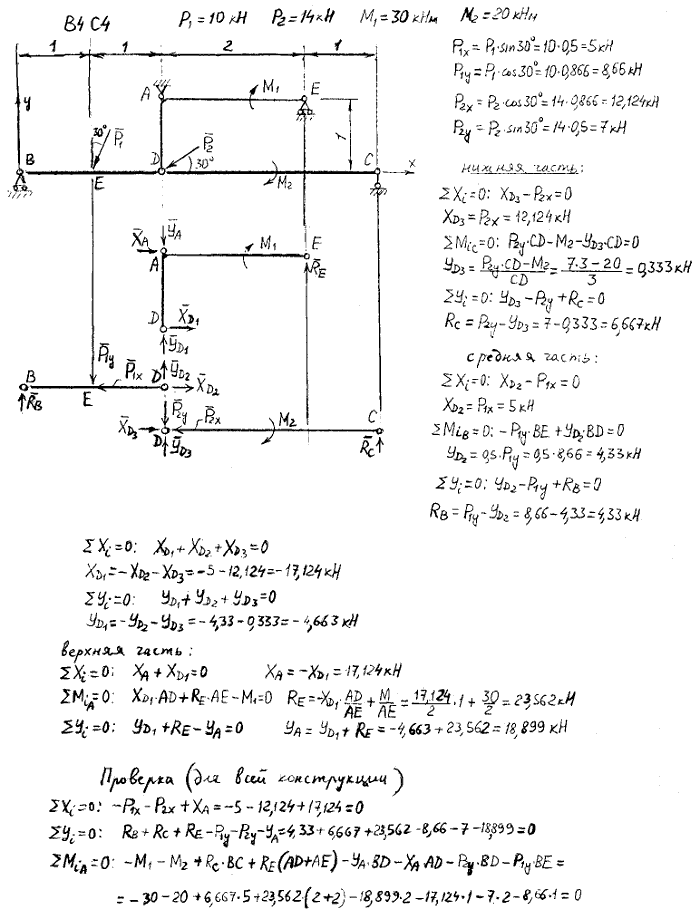 B4 C4 P₁ = 10 кН P₂ = 14 кН M₁ = 30 кНм M₂ = 20 кНм
1 1 2 1
y A M₁ E 1
30° P̄₁ P̄₂ 30°
B E D M₂ C x
ȲA
X̄A M₁ E
A R̄E
D X̄D₁
ȲD₁
P̄₁y ȲD₂
B P̄₁x D X̄D₂
R̄B E P̄₂y P̄₂x M₂ C
X̄D₃ D
ȲD₃ R̄C
P₁x = P₁·sin30° = 10·0,5 = 5 кН
P₁y = P₁·cos30° = 10·0,866 = 8,66 кН
P₂x = P₂·cos30° = 14·0,866 = 12,124 кН
P₂y = P₂·sin30° = 14·0,5 = 7 кН
нижняя часть:
ΣXi = 0: XD₃ – P₂x = 0
XD₃ = P₂x = 12,124 кН
ΣMiC = 0: P₂y·CD – M₂ – YD₃·CD = 0
YD₃ = (P₂y·CD – M₂)/CD = (7·3 – 20)/3 = 0,333 кН
ΣYi = 0: YD₃ – P₂y + RC = 0
RC = P₂y – YD₃ = 7 – 0,333 = 6,667 кН
средняя часть:
ΣXi = 0: XD₂ – P₁x = 0
XD₂ = P₁x = 5 кН
ΣMiB = 0: –P₁y·BE + YD₂·BD = 0
YD₂ = 0,5·P₁y = 0,5·8,66 = 4,33 кН
ΣYi = 0: YD₂ – P₁y + RB = 0
RB = P₁y – YD₂ = 8,66 – 4,33 = 4,33 кН
ΣXi = 0: XD₁ + XD₂ + XD₃ = 0
XD₁ = –XD₂ – XD₃ = –5 – 12,124 = –17,124 кН
ΣYi = 0: YD₁ + YD₂ + YD₃ = 0
YD₁ = –YD₂ – YD₃ = –4,33 – 0,333 = –4,663 кН
верхняя часть:
ΣXi = 0: XA + XD₁ = 0 XA = –XD₁ = 17,124 кН
ΣMiA = 0: XD₁·AD + RE·AE – M₁ = 0 RE = –XD₁·AD/AE + M/AE = 17,124/2·1 + 30/2 = 23,562 кН
ΣYi = 0: YD₁ + RE – YA = 0 YA = YD₁ + RE = –4,663 + 23,562 = 18,899 кН
Проверка (для всей конструкции)
ΣXi = 0: –P₁x – P₂x + XA = –5 – 12,124 + 17,124 = 0
ΣYi = 0: RB + RC + RE – P₁y – P₂y – YA = 4,33 + 6,667 + 23,562 – 8,66 – 7 – 18,899 = 0
ΣMiA = 0: –M₁ – M₂ + RC·BC + RE(AD + AE) – YA·BD – XA·AD – P₂y·BD – P₁y·BE =
= –30 – 20 + 6,667·5 + 23,562(2+2) – 18,899·2 – 17,124·1 – 7·2 – 8,66·1 = 0